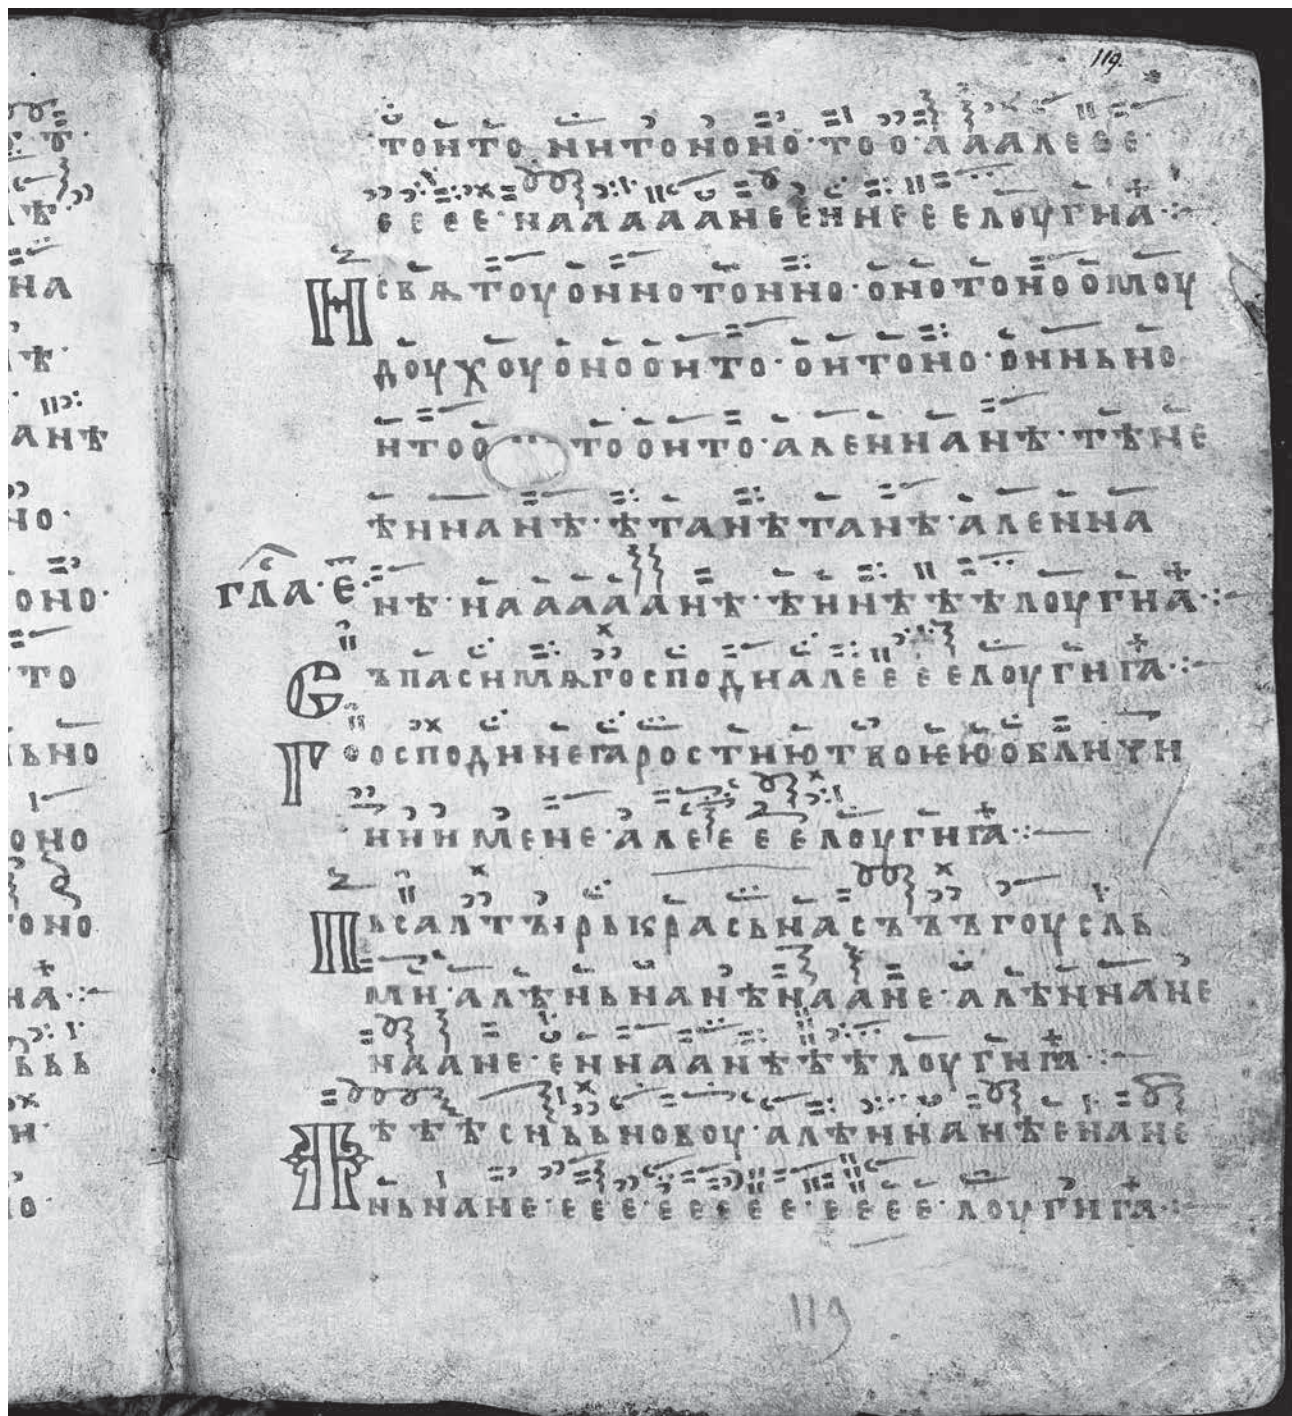 119.
тонто нитононо·тоо·аааалеее·
ееее·наааааанееннееелоугна·:~
Исвѧтоуоннотонно·онотонооомоу
доухоуоноонто·онтоно·онньно
нтоо тоонто·аленнанѣ·тѣне
ѣннанѣ·ѣтанѣтанѣ·аленна
гла·е· нѣ·наааааанѣ·ѣннѣѣѣлоугна·:~
Съпасимѧгосподиалеееелоугиꙗ·:~
Госпоdинеꙗростиютвоѥюобличи
ниимене·алеееелоугиꙗ·:~
Пьсалтъірькрасьнасъъъгоусль
ми·алѣньнанѣнаане·алѣннане
наане·еннаанѣѣѣлоугиꙗ·:~
Пѣѣѣснььновоу·алѣннанѣенане
ньнане·еее·еееее·ееее·лоугиꙗ·:~
119